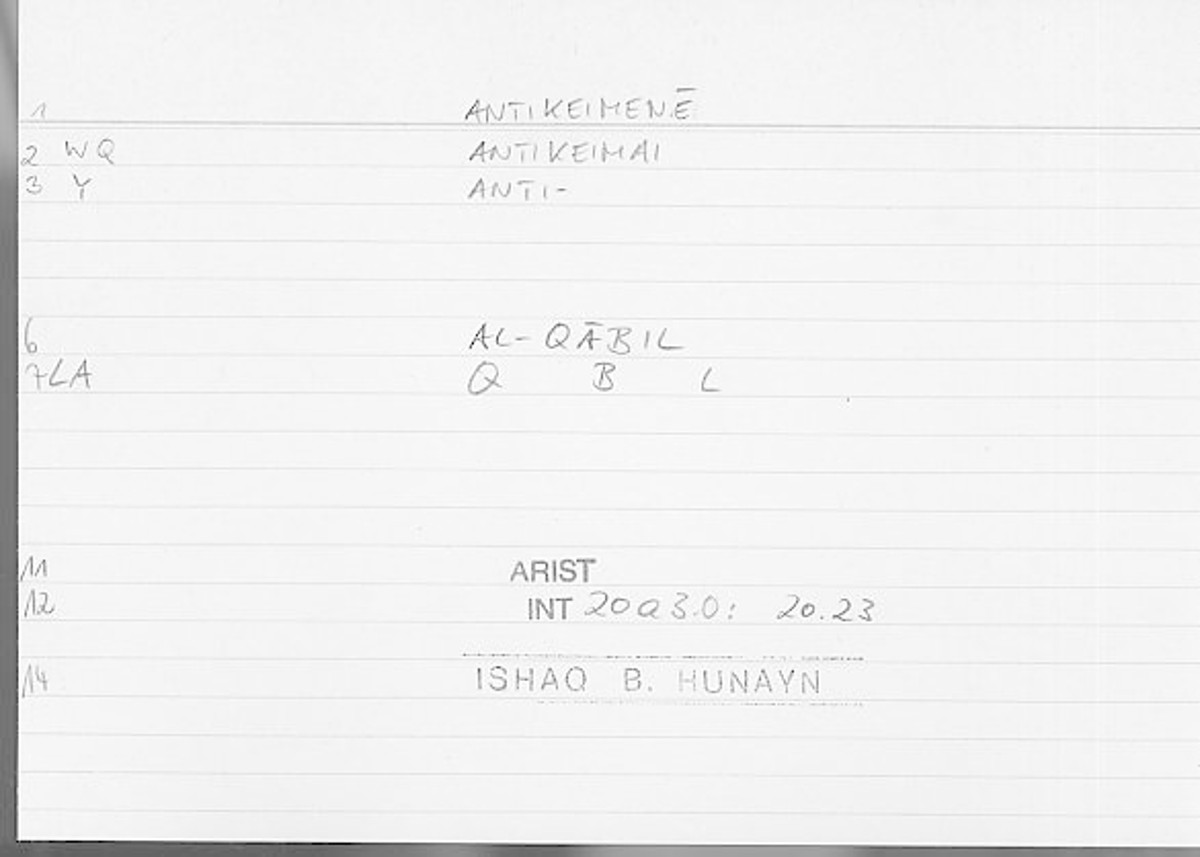 1 ANTIKEIMENĒ
2 WQ ANTIKEIMAI
3 Y ANTI-
6 AL-QĀBIL
7LA Q B L
11 ARIST
12 INT 20a30: 20.23
14 ISHAQ B. HUNAYN